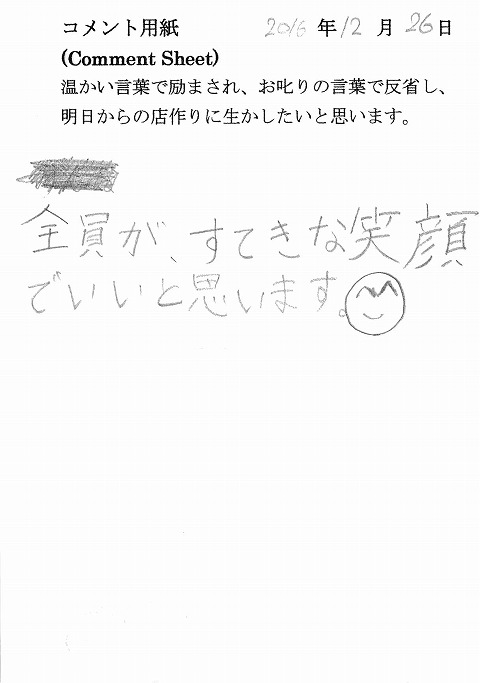 コメント用紙 2016 年 12 月 26 日
(Comment Sheet)
温かい言葉で励まされ、お叱りの言葉で反省し、
明日からの店作りに生かしたいと思います。
全員が、すてきな笑顔
でいいと思います。